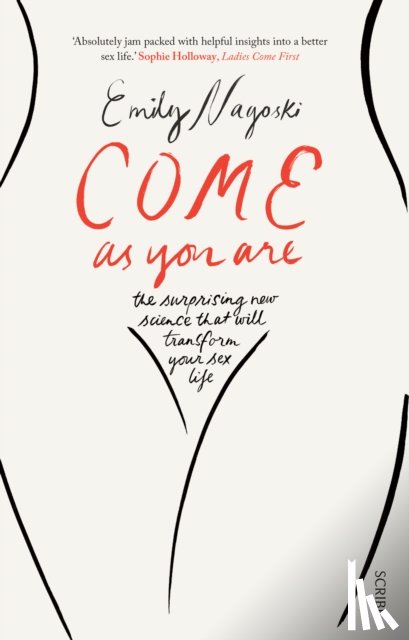 ‘Absolutely jam packed with helpful insights into a better
sex life.’ Sophie Holloway, Ladies Come First
Emily Nagoski
COME
as you are
the surprising new
science that will
transform
your sex
life